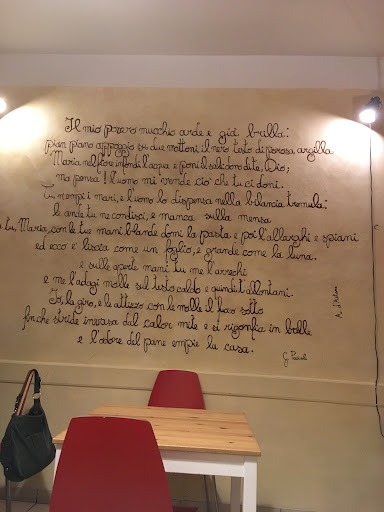 Il mio povero mucchio arde e già brilla:
pian piano appoggio su due mattoni il nero testo di porosa argilla
Maria nel fiore infondi l'acqua e poni il sale dono di te, Dio;
ma pensa! l'uomo mi vende ciò che tu ci doni.
Tu rompi i mari, e l'uomo lo dispensa nella bilancia tremula:
le lande tu ne condisci, e manca sulla mensa
a tu, Maria, con le tue mani blande domi la pasta e poi l'allarghi e spiani
ed ecco è liscia come un foglio, e grande come la luna.
e sulle aperte mani tu me l'arrechi
e me l'adagi molle sul testo caldo e quindi t'allontani.
Io, la giro, e le attizzo con le molle il fuoco sotto
finché stride invasa dal calor mite e si rigonfia in bolle
e l'odore del pane empie la casa.
G. Pascoli